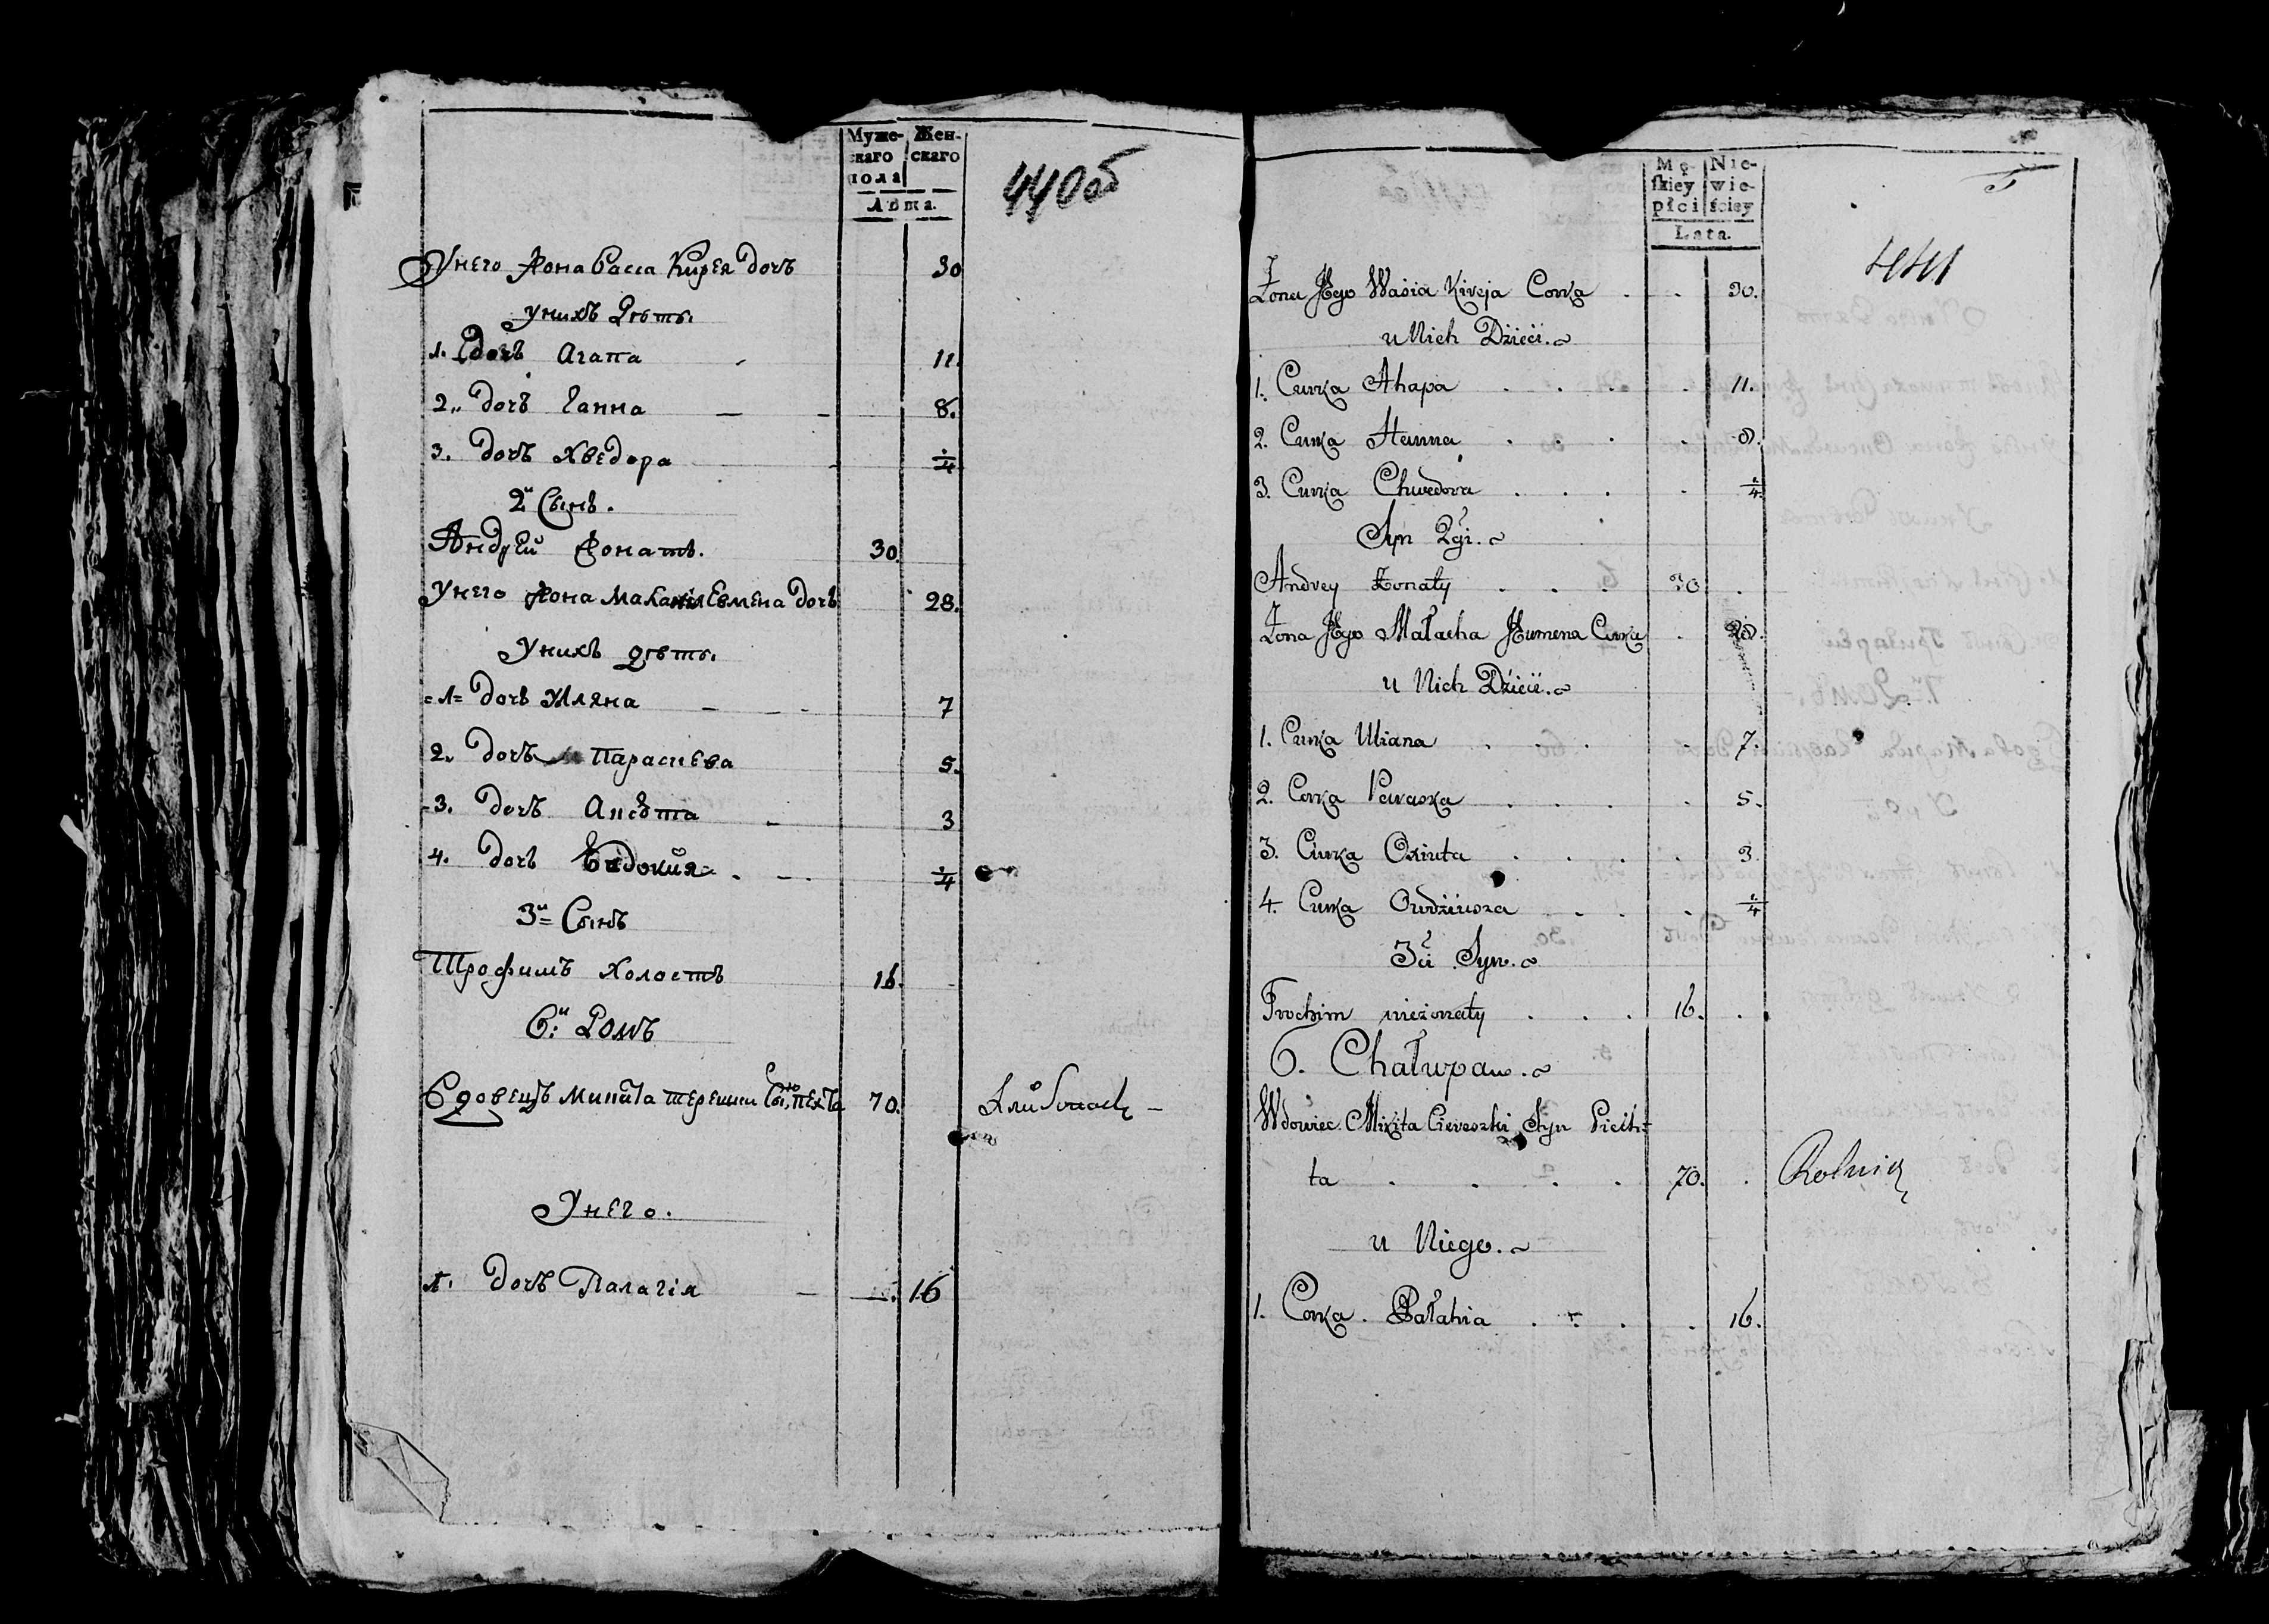 Муже-
скаго
пола
Жен-
скаго
Лѣта.
440об
Унего Жона Васса Кирея дочь 30
унихъ Дѣти.
1. дочь Агапа 11.
2„ дочь Ганна 8.
3. дочь Хведора 1/4
2й Сынъ.
Андрей Жонатъ. 30.
Унего Жона Малания Евмена дочь 28.
Унихъ дѣти.
=1= дочь Уляна 7
2„ дочь Параскева 5.
3. дочь Аксюта 3
4. дочь Евдокия 1/4
3й Сынъ
Трофимъ Холостъ 16.
6й Домъ
Вдовецъ Микита терешки Сынъ 70.
Унего.
1. дочь Палагія 16
Mę-
skiey
płci
Nie-
wie-
ściey
Lata.
441
Żona Jego Wasia Kireja Corka 30.
u Nich Dzieci.
1. Curka Ahapa 11.
2. Curka Hanna 8.
3. Curka Chwedora 1/4
Syn 2gi.
Andrey Żonaty 30
Żona Jego Małacha Jumena Curka 28.
u Nich Dzieci.
1. Curka Uliana 7.
2. Corka Paraska 5.
3. Curka Oxiuta 3
4. Curka Owdziusza 1/4
3ci Syn.
Trochim nieżonaty 16.
6. Chałupa.
Wdowiec Mikita Ciereszki Syn Piech-
ta 70. Rolnik
u Niego.
1. Corka Pałahia 16.